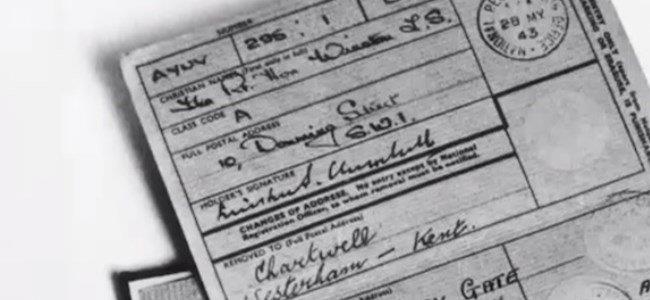 NUMBER
AYNY 296 : 1
CHRISTIAN NAMES (First only in full)
The Rt. Hon Winston L.S.
CLASS CODE A
FULL POSTAL ADDRESS
10, Downing Street
S.W.1.
HOLDER'S SIGNATURE
Winston S. Churchill
CHANGES OF ADDRESS. No entry except by National
Registration Officer, to whom removal must be notified.
REMOVED TO (Full Postal Address)
Chartwell
Westerham - Kent.
GATE
(Full Postal Address)
NATIONAL
OFFICE
28 MY
43